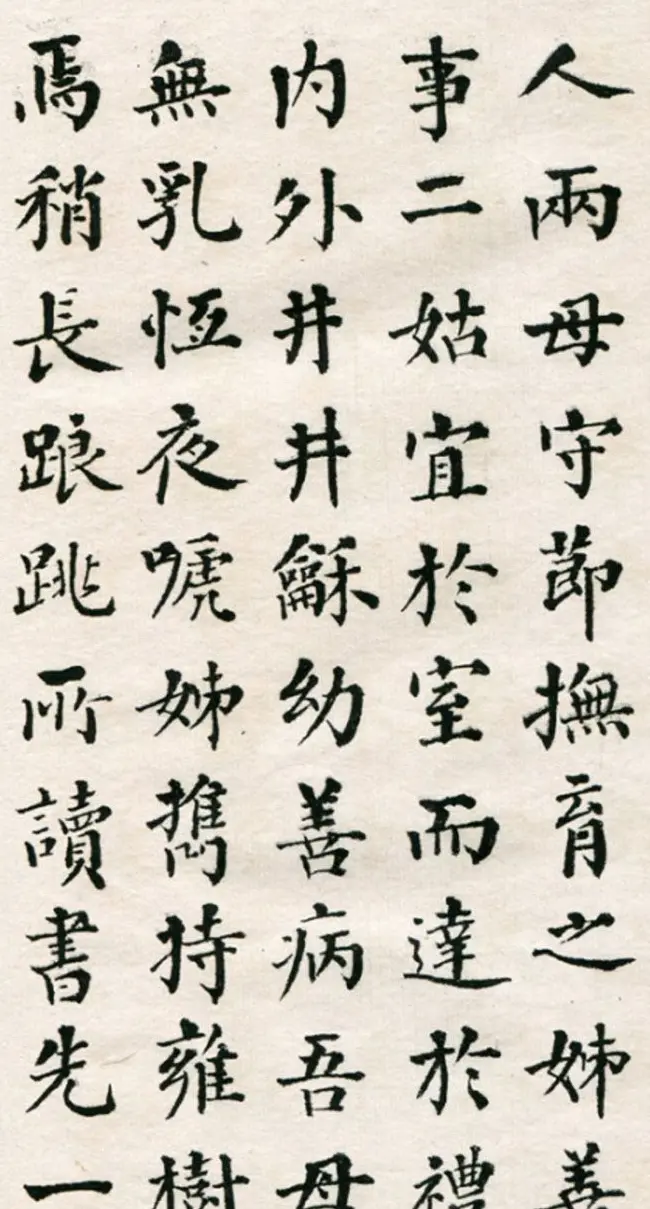 人兩母守節撫育之姊善
事二姑宜於室而達於禮
内外井井龢幼善病吾母
無乳恆夜嗁姊擕持雍樹
焉稍長踉跳所讀書先一